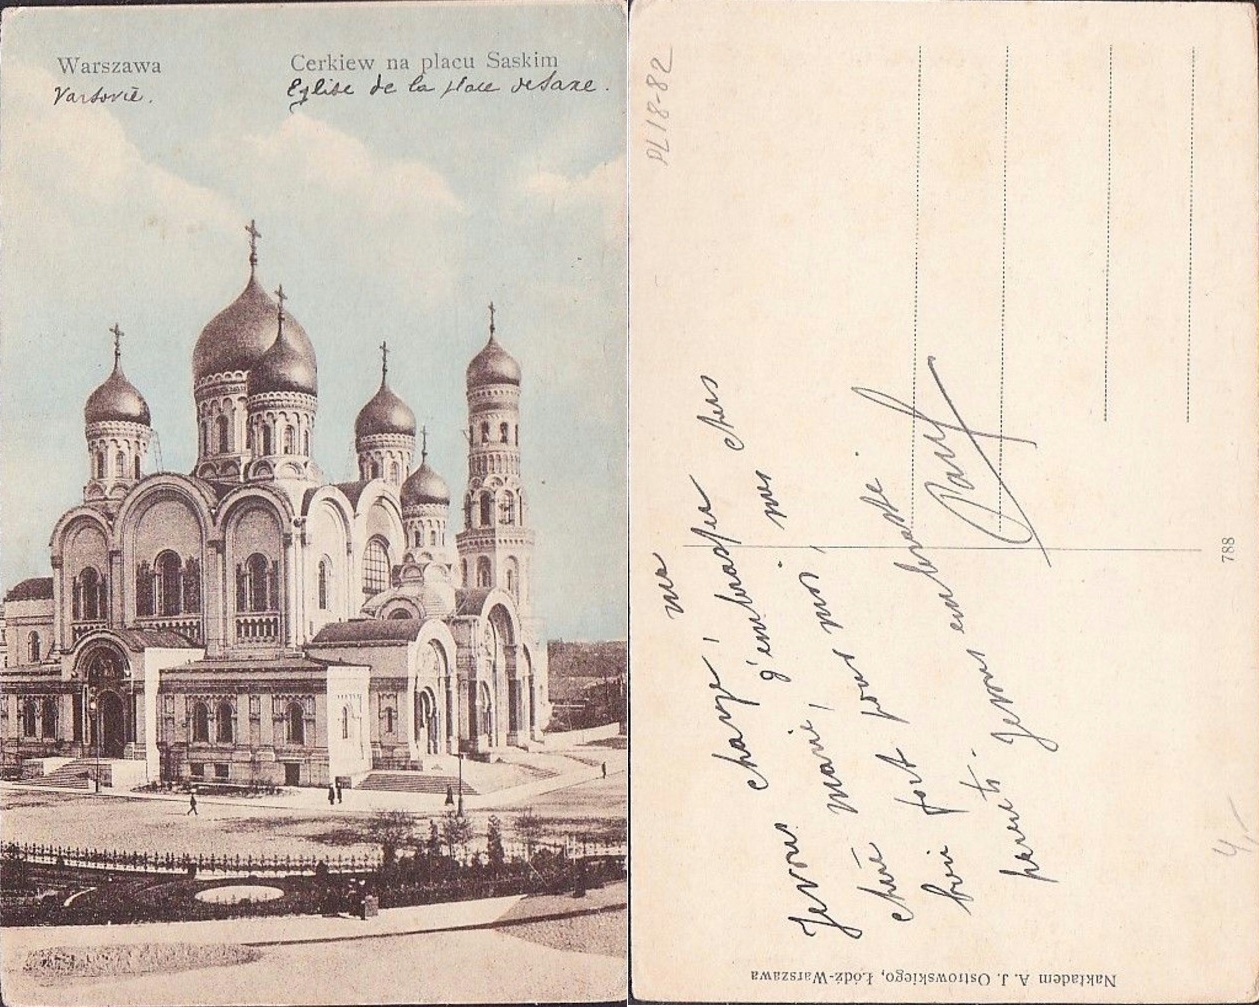 Warszawa
Cerkiew na placu Saskim
Varsovie.
Eglise de la place de Saxe.
PL18-82
Je vous charge, ma
chère marie, d'embrasser
bien fort pour moi, mes chers
parents. Je vous embrasse
Paul
788
4,-
Nakładem A. J. Ostrowskiego, Łódź-Warszawa